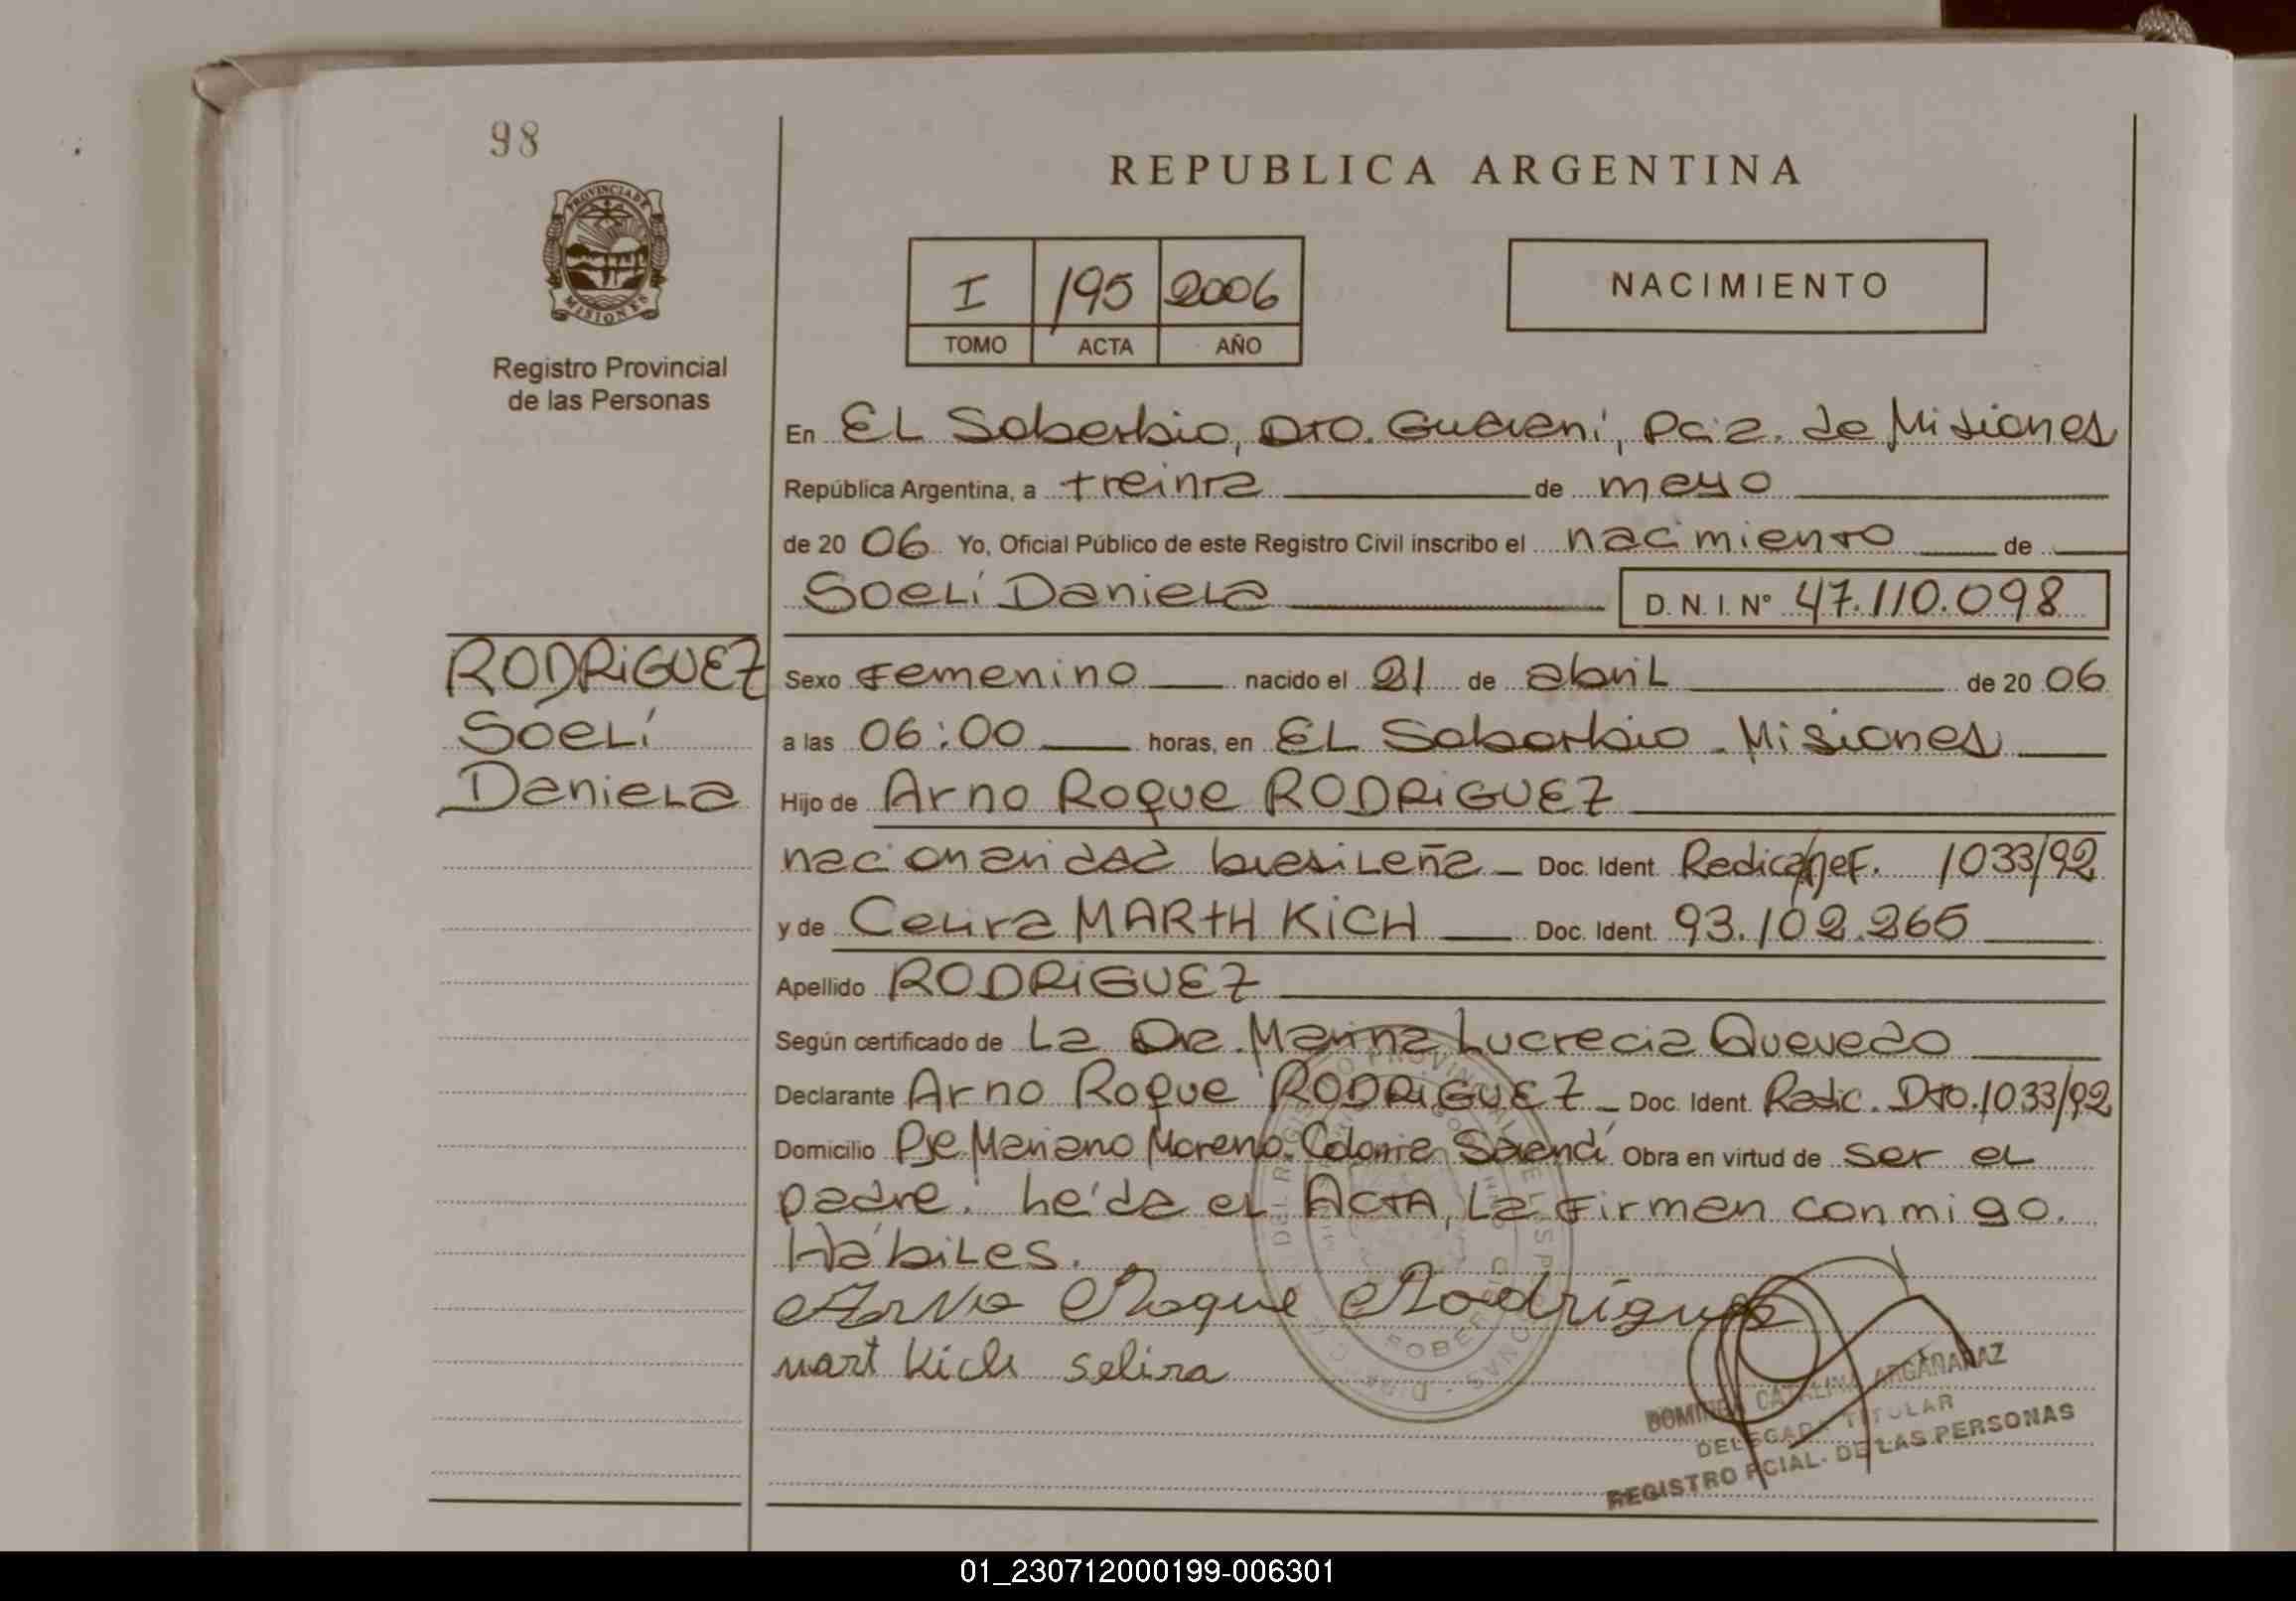 98
PROVINCIA DE
MISIONES
Registro Provincial
de las Personas
REPUBLICA ARGENTINA
I 195 2006
TOMO ACTA AÑO
NACIMIENTO
En EL Soberbio, Dto. Guaraní, Pcia. de Misiones
República Argentina, a treinta de mayo
de 2006 Yo, Oficial Público de este Registro Civil inscribo el nacimiento de
SoeLí Daniela D. N. I. Nº 47.110.098
RODRIGUEZ
SoeLí
Daniela
Sexo Femenino nacido el 21 de abril de 2006
a las 06:00 horas, en EL Soberbio - Misiones
Hijo de Arno Roque RODRIGUEZ
nacionalidad brasileña - Doc. Ident. 1033/92
y de Celira MARTH KICH Doc. Ident. 93.102.265
Apellido RODRIGUEZ
Según certificado de La Dra. Marina Lucrecia Quevedo
Declarante Arno Roque RODRIGUEZ - Doc. Ident. Radic. Dto. 1033/92
Domicilio Pje. Mariano Moreno. Colonia Obra en virtud de ser el
padre. Leída el ACTA, La Firman conmigo.
Hábiles.
Arno Roque Rodrigues
mart Kich selira
DOMINGA CATALINA ARGAÑARAZ
DELEGADA TITULAR
REGISTRO PCIAL. DE LAS PERSONAS
01_230712000199-006301